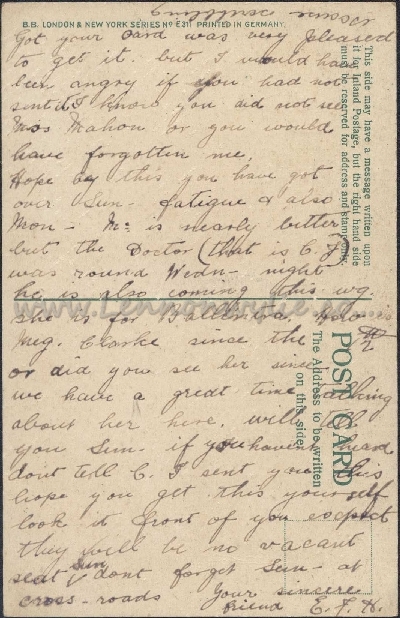 B.B. LONDON & NEW YORK SERIES No E311 PRINTED IN GERMANY.
Got your card was very pleased
to get it. but I would have
been angry if you had not
sent it I know you did not see
Miss Mahon or you would
have forgotten me.
Hope by this you have got
over Sun- fatigue & also
Mon- Mc is nearly better
but the Doctor (that is C. J)
was round Wedn- night
he is also coming this
she is for Ballentra. How is
Meg. Clarke since the
or did you see her since
we have a great time talking
about her here. will tell
you Sun. if you havent heard
dont tell C. I sent you this
hope you get this yourself
look it front of you expect
they will be no vacant
seat Sun dont forget Sun- at
cross-roads Your sincere
friend E. J. H.
This side may have a message written upon
it for Inland Postage, but the right hand side
must be reserved for address and stamp only.
POST CARD
The Address to be written
on this side.